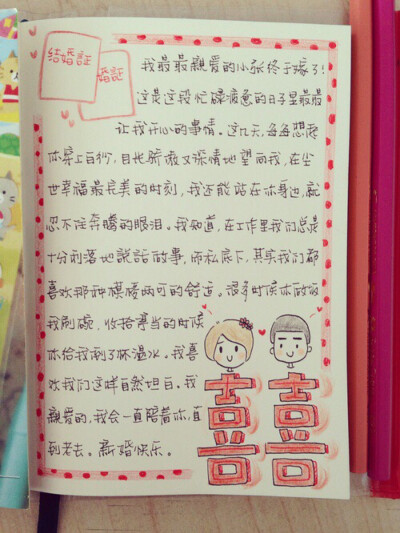 結婚証
婚証
我最最親爱的小张终于嫁了!
这是这段忙碌疲惫的日子里最最
让我开心的事情。这几天,每每想起
你穿上白纱,目光骄傲又深情地望向我,在尘
世幸福最完美的时刻,我还能站在你身边,就
忍不住奔腾的眼泪。我知道,在工作里我们总是
十分利落地説話做事,而私底下,其实我们都
喜欢那种模棱两可的舒适。很多时候你做饭
我刷碗,收拾妥当的时候
你给我倒了杯温水。我喜
欢我们这样自然坦白。我
親爱的,我会一直陪着你,直
到老去。新婚快乐。
囍